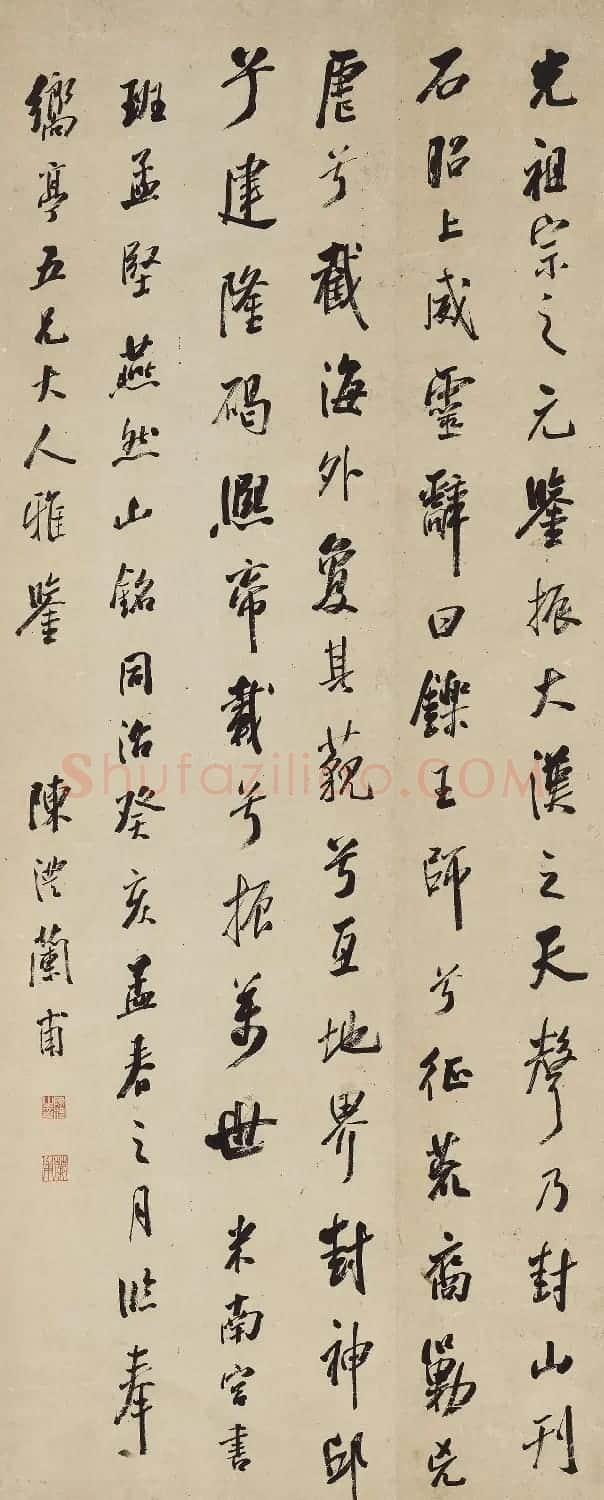 光祖宗之元鑒振大漢之天聲乃封山刊
石昭上威靈辭曰鑠王師兮征荒裔勦兇
虐兮截海外敻其藐兮亙地界封神邱
兮建隆碣熙帝載兮振萬世 米南宮書
班孟堅燕然山銘同治癸亥孟春之月臨奉
嚮亭五兄大人雅鑒 陳澧蘭甫
Shufaziliao.COM